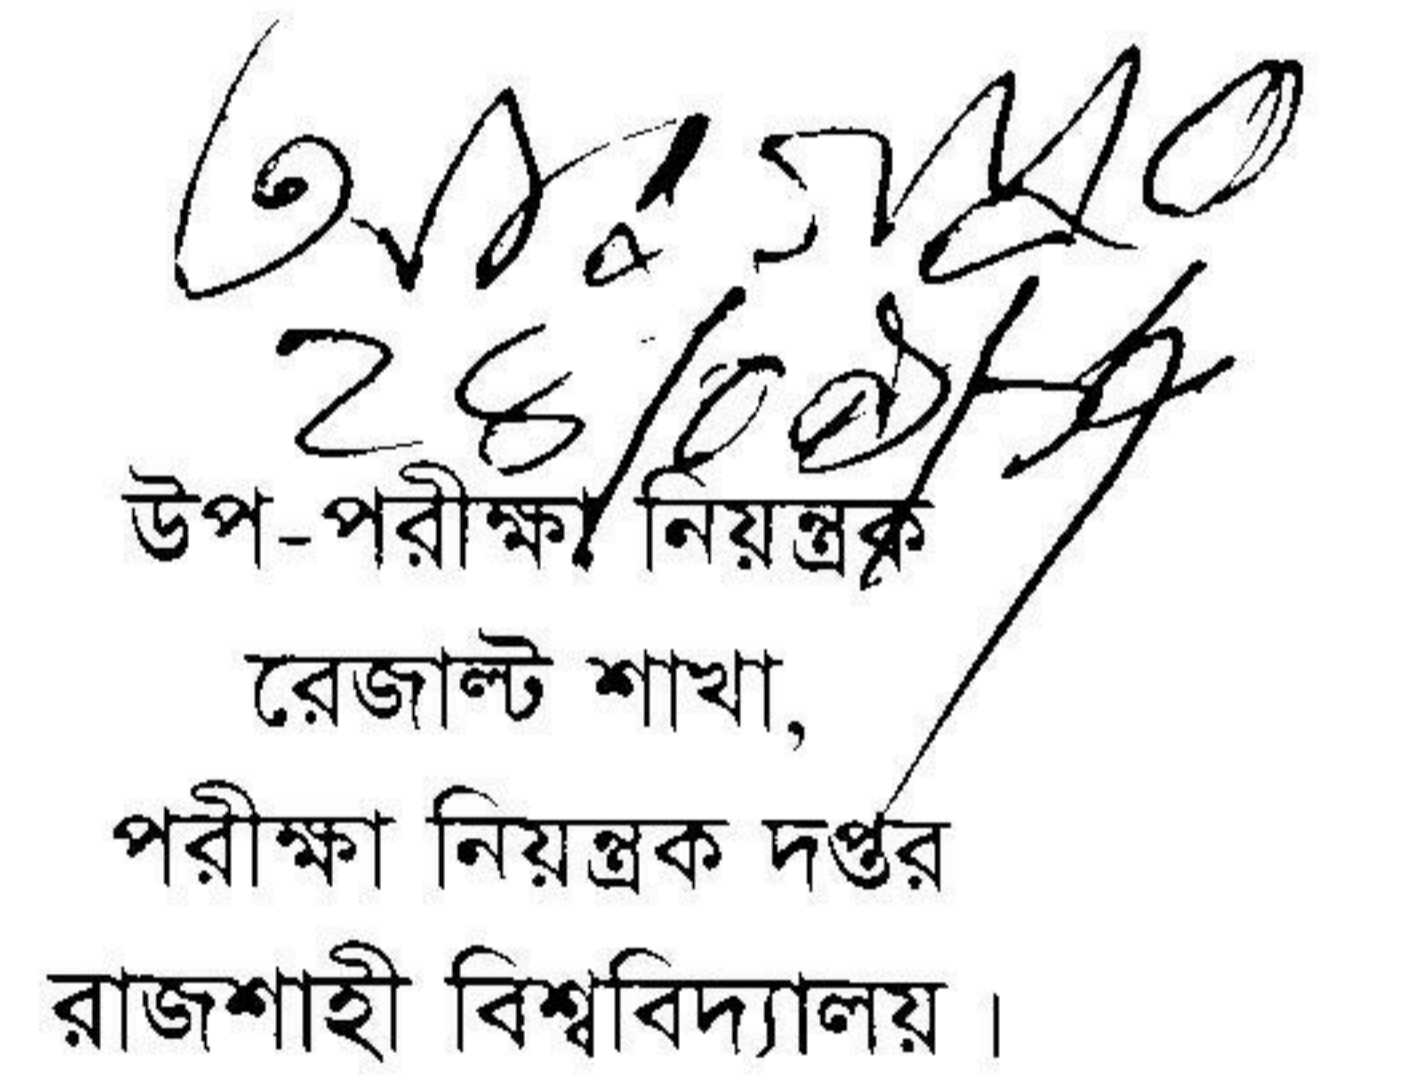 উপ-পরীক্ষা নিয়ন্ত্রক
রেজাল্ট শাখা,
পরীক্ষা নিয়ন্ত্রক দপ্তর
রাজশাহী বিশ্ববিদ্যালয়।